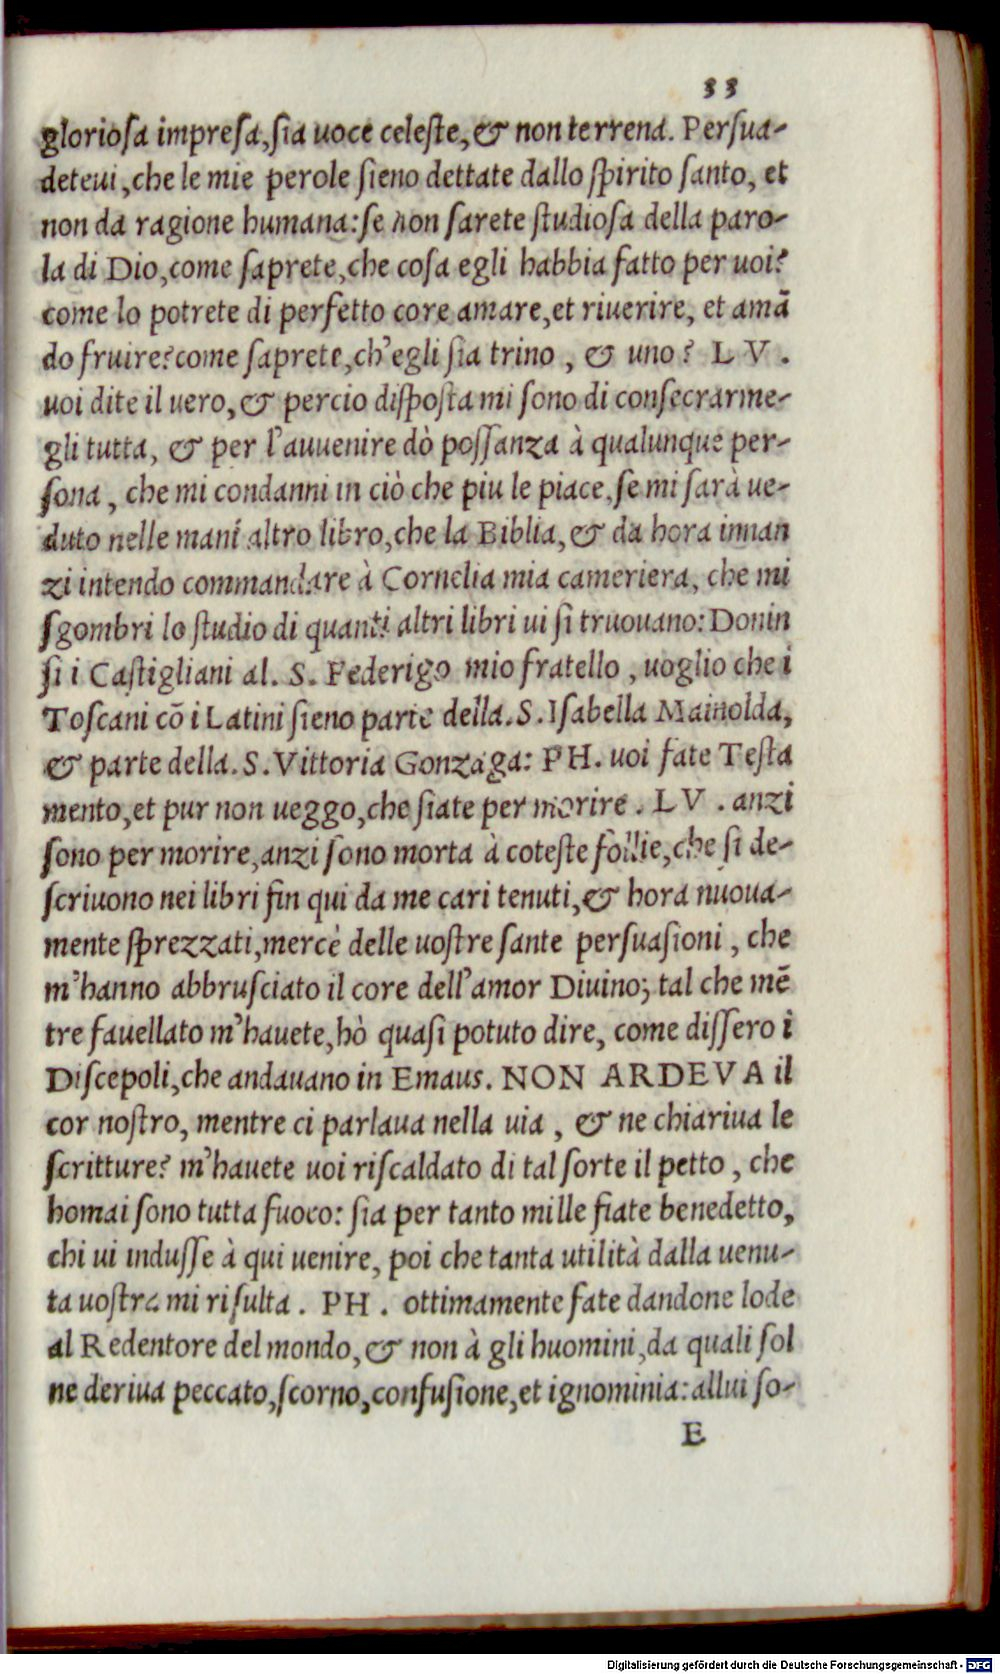 33
gloriosa impresa, sia uoce celeste, & non terrena. Persua-
deteui, che le mie perole sieno dettate dallo spirito santo, et
non da ragione humana: se non sarete studiosa della paro-
la di Dio, come saprete, che cosa egli habbia fatto per uoi?
come lo potrete di perfetto core amare, et riuerire, et amā
do fruire? come saprete, ch'egli sia trino, & uno? LV.
uoi dite il uero, & percio disposta mi sono di consecrarme-
gli tutta, & per l'auuenire dò possanza à qualunque per-
sona, che mi condanni in ciò che piu le piace. se mi sarà ue-
duto nelle mani altro libro, che la Biblia, & da hora innan
zi intendo commandare à Cornelia mia cameriera, che mi
sgombri lo studio di quanti altri libri ui si truouano: Donin
si i Castigliani al. S. Federigo mio fratello, uoglio che i
Toscani cō i Latini sieno parte della. S. Isabella Mainolda,
& parte della. S. Vittoria Gonzaga: PH. uoi fate Testa
mento, et pur non ueggo, che siate per morire. LV. anzi
sono per morire, anzi sono morta à coteste follie, che si de-
scriuono nei libri fin qui da me cari tenuti, & hora nuoua-
mente sprezzati, mercè delle uostre sante persuasioni, che
m'hanno abbrusciato il core dell'amor Diuino; tal che mē
tre fauellato m'hauete, hò quasi potuto dire, come dissero i
Discepoli, che andauano in Emaus. NON ARDEVA il
cor nostro, mentre ci parlaua nella uia, & ne chiariua le
scritture? m'hauete uoi riscaldato di tal sorte il petto, che
homai sono tutta fuoco: sia per tanto mille fiate benedetto,
chi ui indusse à qui uenire, poi che tanta utilità dalla uenu-
ta uostra mi risulta. PH. ottimamente fate dandone lode
al Redentore del mondo, & non à gli huomini, da quali sol
ne deriua peccato, scorno, confusione, et ignominia: allui so-
E
Digitalisierung gefördert durch die Deutsche Forschungsgemeinschaft - DFG